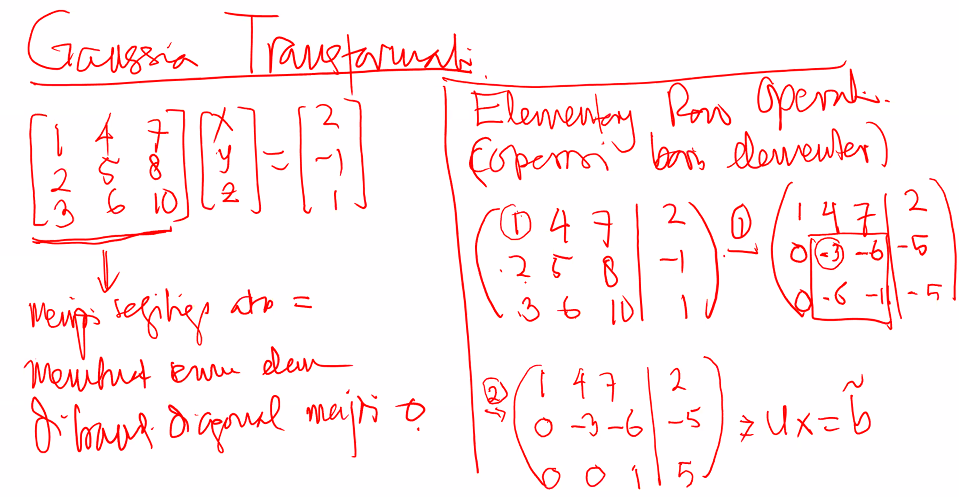 Gaussia Transformati.
[1 4 7] [x] = [2]
[2 5 8] [y] = [-1]
[3 6 10] [z] = [1]
menjdi segitiga atas =
membuat semua elemen
dibawah diagonal menjadi 0
Elementary Row Operati.
(operasi baris elementer)
( ① 4 7 | 2 ) ① → ( 1 4 7 | 2 )
( 2 5 8 | -1 ) ( 0 -3 -6 | -5 )
( 3 6 10 | 1 ) ( 0 -6 -11 | -5 )
② → ( 1 4 7 | 2 )
( 0 -3 -6 | -5 ) ⇒ Ux = b̃
( 0 0 1 | 5 )